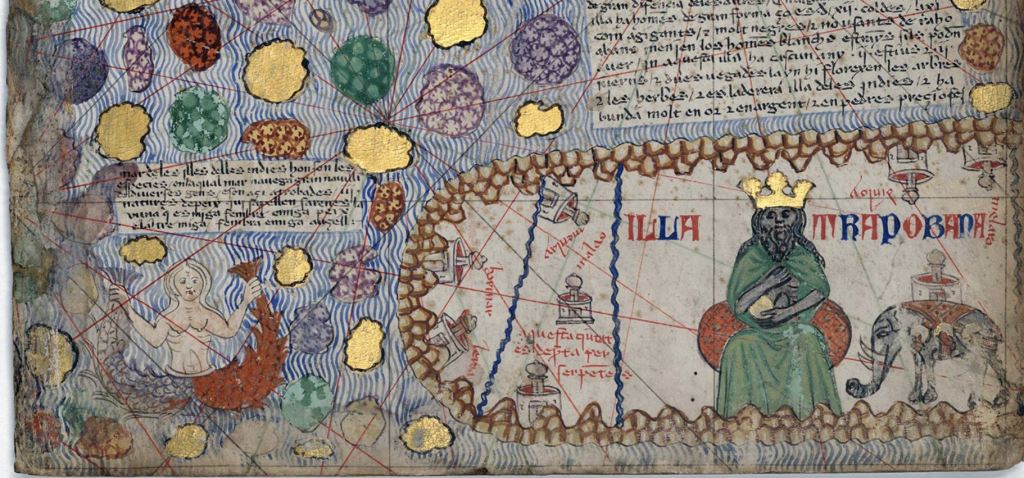 de gran difencia deles altres
illa ha homes de gran forma ço es d xii coldes / axi
com agigants / e molt negres e no usants de raho
abans menjen los homes blanchs estrays sils podn
aver / in aquesta illa ha cascun any ii estius e ii
iverns / e dues vegades layn hi florexen los arbres
e les herbes / e es la derera illa deles indies / e ha
bunda molt en or e en argent / e en pedres precioses
mar deles illes delles indies hon son les
especies / en la qual mar navega gran navili
de averses gens / e son aci atrobades iii
natures de peix qui sapellen sarenes / la
una q es miga fembra e miga peix
e laltre miga fembra e miga auçell
ILLA TRAPOBANA
malao
Aquesta ciutat
es desta per
serpetes